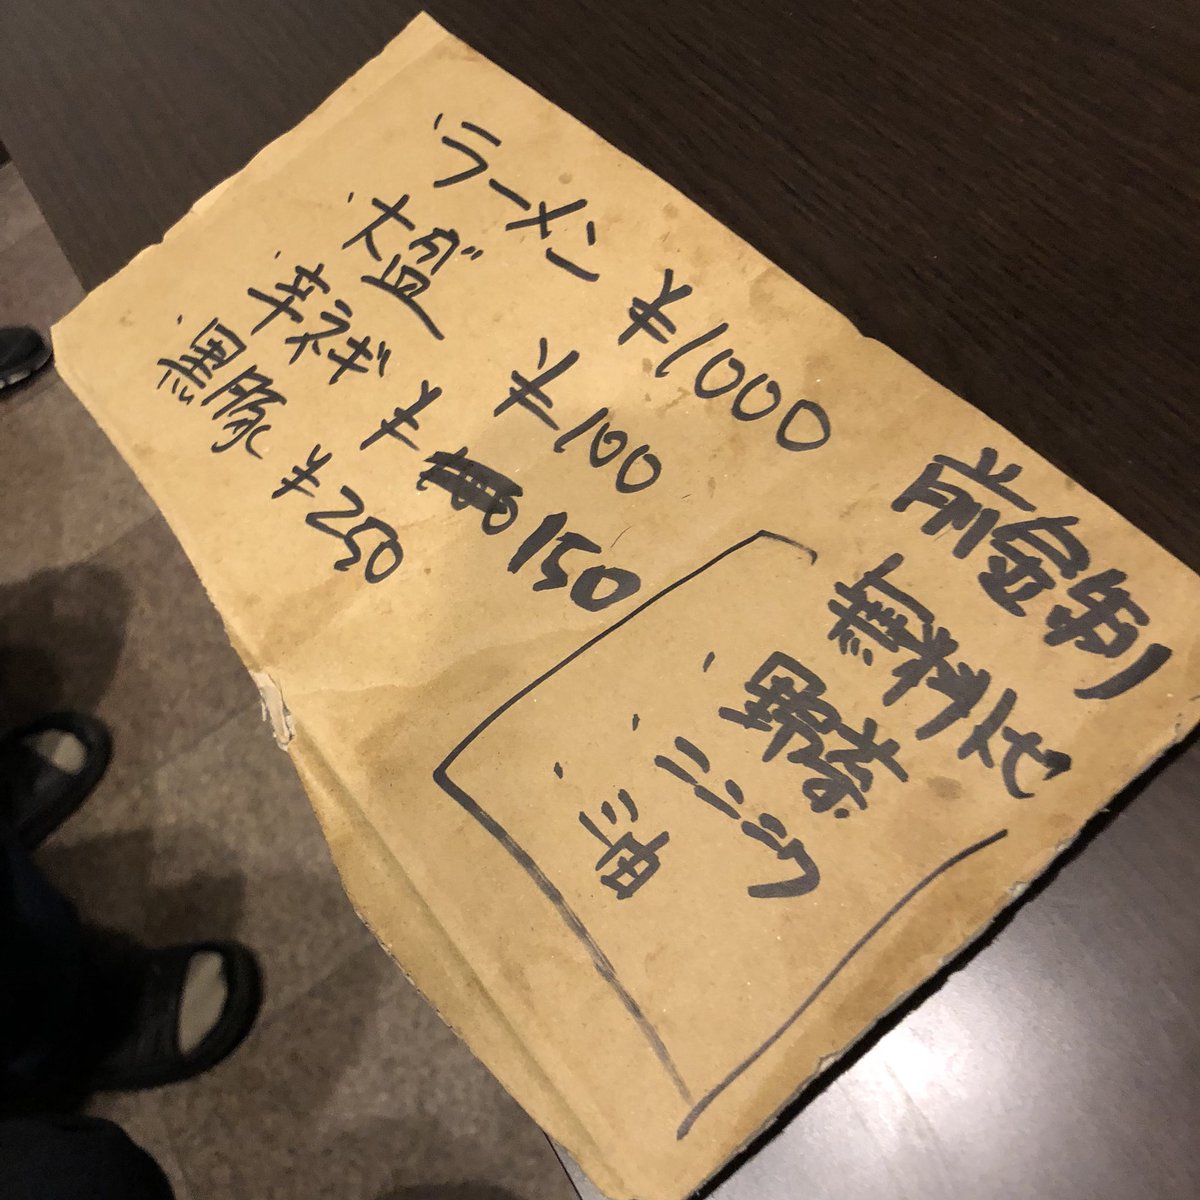 ・ラーメン ¥1000
・大盛 ¥100
・辛ネギ ¥150
・黒豚 ¥250
前金制
無料
・野菜
・ニンニク
・油